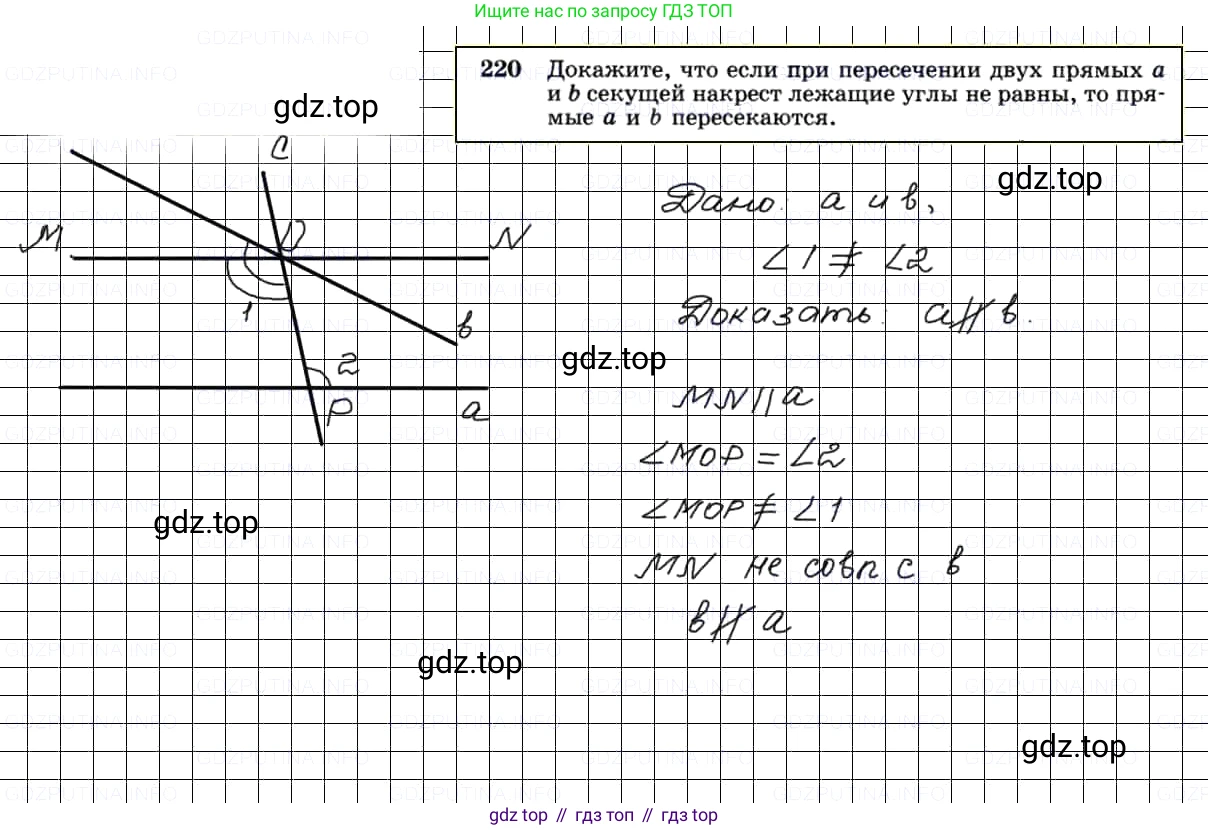 Ищите нас по запросу ГДЗ ТОП
220 Докажите, что если при пересечении двух прямых a
и b секущей накрест лежащие углы не равны, то пря-
мые a и b пересекаются.
gdz.top
C
gdz.top
Дано: a и b,
M
O
N
∠1 ≠ ∠2
1
Доказать: a ∦ b.
b
2
gdz.top
P
a
MN || a
∠MOP = ∠2
∠MOP ≠ ∠1
gdz.top
MN не совп с b
b ∦ a
gdz.top
gdz.top
gdz top // гдз топ // gdz top
GDZPUTINA.INFO